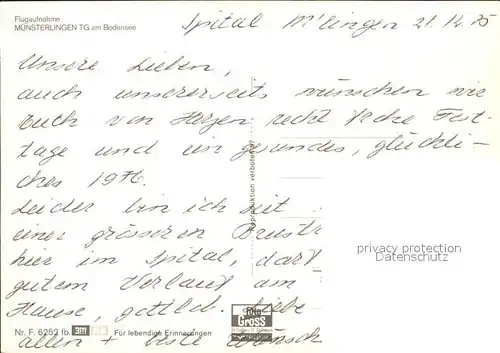 Flugaufnahme
MÜNSTERLINGEN TG am Bodensee
Spital M'lingen 21.12.75
Unsere Lieben,
auch unsererseits wünschen wir
Euch von Herzen recht frohe Fest-
tage und ein gesundes, glückli-
ches 1976.
Leider bin ich seit
einer grösseren
hier im Spital, darf
gutem Verlauf am
Hause, gottlob. Liebe
allen + beste Wünsch
Reproduktion verboten
privacy protection
Datenschutz
Foto
GROSS
St. Gallen
Nr. F. 6252 lb. 3m Für lebendige Erinnerungen